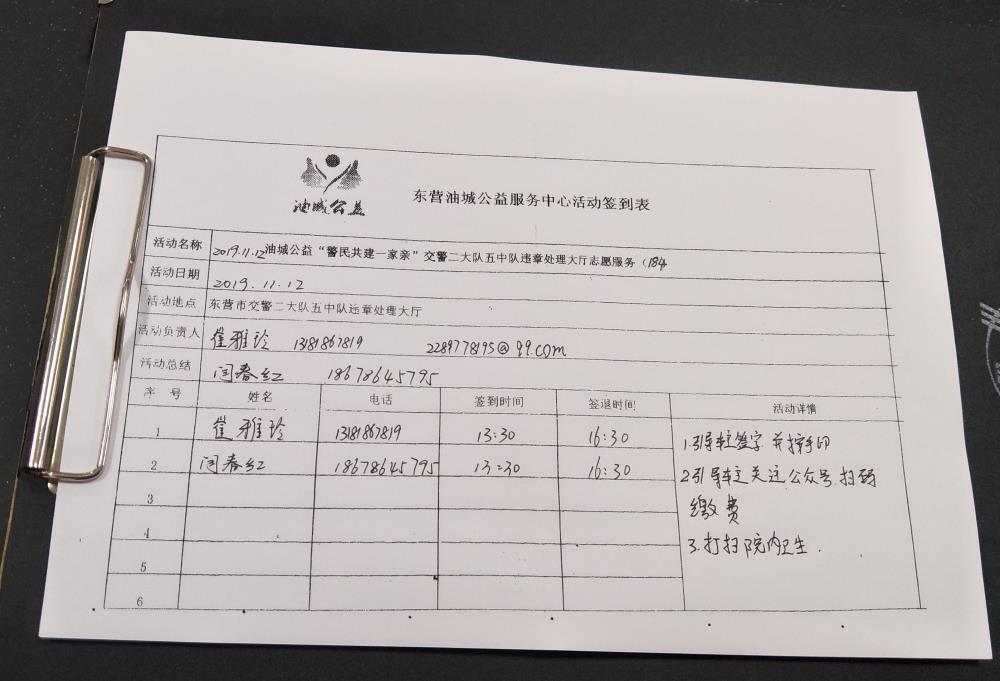 油城公益
东营油城公益服务中心活动签到表
活动名称 2019.11.12油城公益“警民共建一家亲”交警二大队五中队违章处理大厅志愿服务（184
活动日期 2019.11.12
活动地点 东营市交警二大队五中队违章处理大厅
活动负责人 崔雅玲 13181867819 2289778195@qq.com
活动总结 闫春红 18678645795
序号 姓名 电话 签到时间 签退时间 活动详情
1 崔雅玲 13181867819 13:30 16:30 1.引导车主签字并按手印
2 闫春红 18678645795 13:30 16:30 2.引导车主关注公众号.扫码
3 缴费
4 3.打扫院内卫生.
5
6